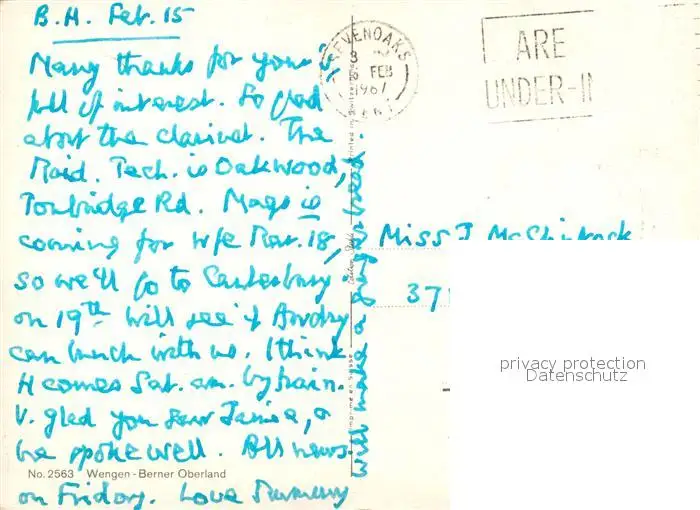 B.H. Feb. 15
Many thanks for yours,
full of interest. So glad
about the clarinet. The
Maid. Tech. is Oakwood,
Tonbridge Rd. Mags is
coming for w/e Mar. 18,
so we'll go to Canterbury
on 19th will see if Audry
can lunch with us. I think
H comes Sat. am. by train.
V. glad you saw Jamie, &
he spoke well. All news
on Friday. Love Mummy
will make a ginger bread.
No. 2563 Wengen - Berner Oberland
SEVENOAKS
FEB
1967
ARE
UNDER-I
Miss J
37
privacy protection
Datenschutz